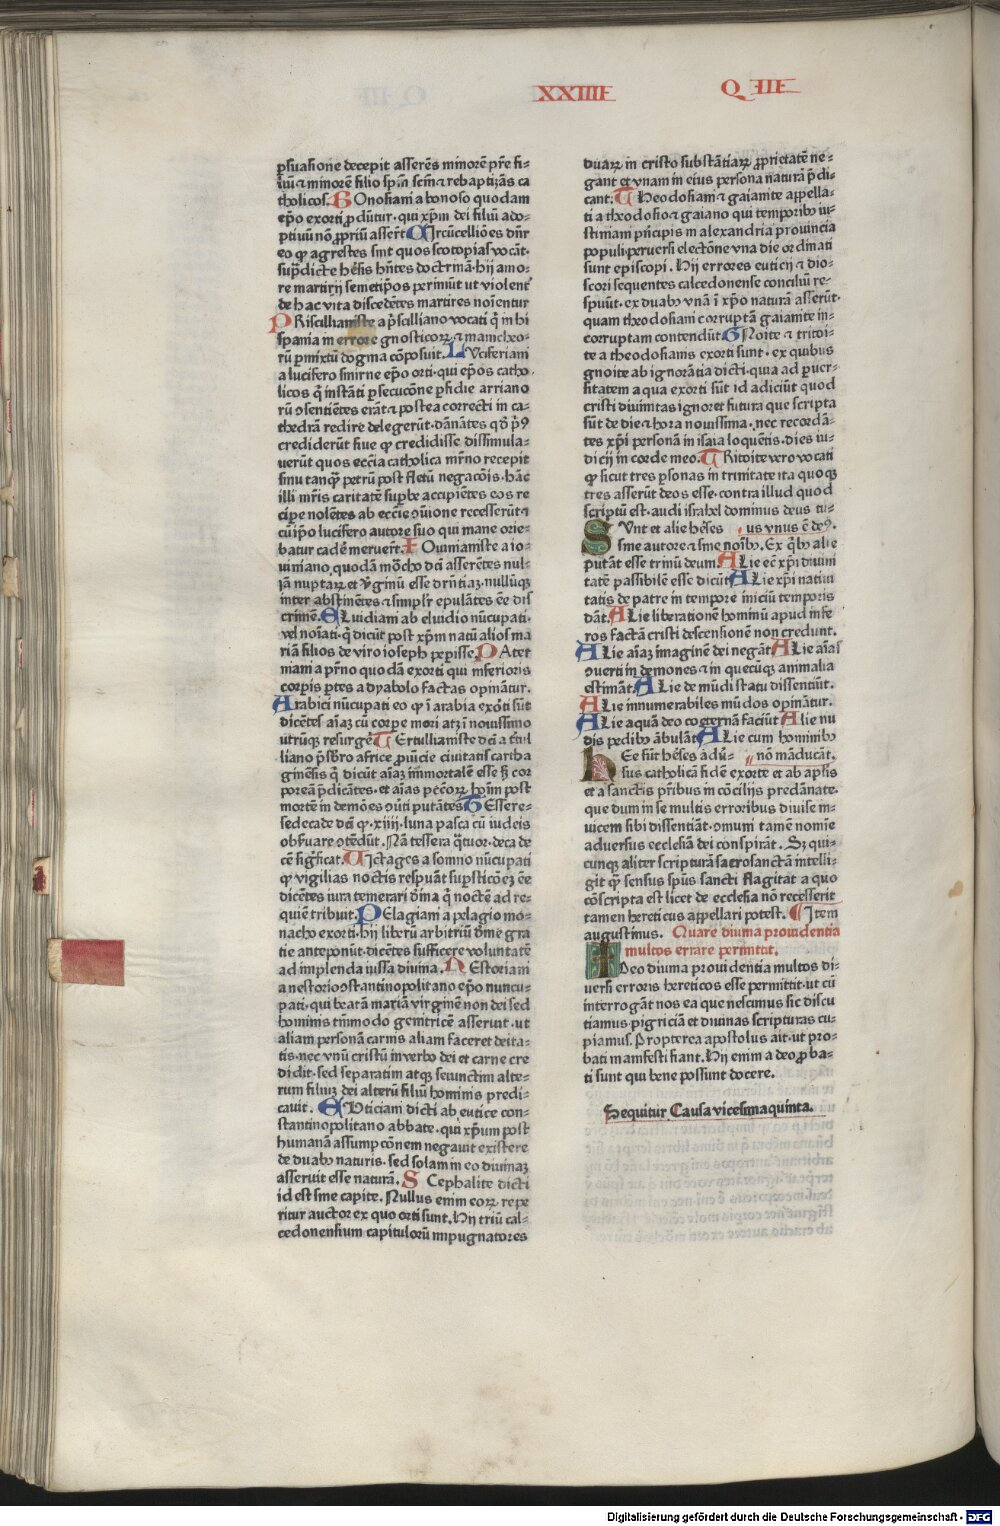 XXIIII Q III
ꝑsuasione decepit asserēs minorē pr̄e fi-
liū ⁊ minorē filio sp̄m sc̄m ⁊ rebaptizās ca
tholicos. Bonosiani a bonoso quodam
ep̄o exorti ꝓdūtur. qui xp̄m dei filiū ado-
ptiuū nō ꝓpriū asserūt Circūcelliōes dn̄r
eo ꝙ agrestes sint quos scotopias vocāt.
sup̄dicte hēsis hn̄tes doctrinā. hij amo-
re martirij semetip̄os perimūt ut violent̄
de hac vita discedētes martires noīentur
PRiscillianiste a p̄scilliano vocati q̄ in hi
spania in errore gnosticoꝝ ⁊ manicheo-
rū ꝑmixtū dogma cōposuit. LVciferiani
a lucifero smirne ep̄o orti. qui ep̄os catho-
licos q̄ instāti ꝑsecucōne ꝑfidie arriano
rū ꝯsentiētes erāt ⁊ postea correcti in ca-
thedrā redire delegerūt. dānātes qd̄ p̄ꝰ
crediderūt siue ꝙ credidisse dissimula-
uerūt quos eccīa catholica mr̄no recepit
sinu tanq̄ petrū post fletū negacōis. hāc
illi mr̄is caritatē suꝑbe accipiētes eos re
ciꝑe nolētes ab eccīe ꝯuīone recesserūt ⁊
cū ip̄o lucifero autore suo qui mane orie-
batur cadē meruerūt. IOuinianiste a io-
uiniano quodā mōcho dc̄i asserētes nul-
lā nuptaꝝ et v̄ginū esse dr̄ntiaꝫ. nullūqꝫ
inter abstinētes ⁊ simplr̄ epulātes ēe dis
crimē. ELuidiam ab eluidio nūcupati.
vel noīati. q̄ dicūt post xp̄m natū alios ma
riā filios de viro ioseph peꝑisse. PAter
niani a p̄rno quodā exorti qui inferioris
corꝑis ꝑtes a dyabolo factas opinātur.
Arabici nūcupati eo ꝙ ī arabia exorti sūt
dicētes aīaꝫ cū corpe mori atqꝫ ī nouissimo
utrūqꝫ resurgē TErtullianiste dc̄i a t̄tul
liano p̄sb̄ro africe ꝓuīcie ciuitatis cartha
ginēsis q̄ dicūt aīaꝫ īmortalē esse sꝫ cor
poreā p̄dicātes. et aīas pc̄corꝝ hoīm post
mortē in demōes ꝯūti putātes TEssere-
sedecade dc̄i ꝙ .xiiij. luna pasca cū iudeis
obẜuare ꝯtēdūt. Nā tessera q̄tuor. deca de
cē sigīficat. Nictages a somnio nūcupati
ꝙ vigilias noctis respuāt suꝑsticōeꝫ ēe
dicētes iura temerari diīna q̄ noctē ad re-
quiē tribuit. PElagiani a pelagio mo-
nacho exorti. hij liberū arbitriū dīne gra
tie anteponūt. dicētes sufficere voluntatē
ad implenda iussa diuina. NEstoriani
a nestorio ꝯstantinopolitano ep̄o nuncu-
pati. qui beatā mariā virginē non dei sed
hominis tm̄modo genitricē asseruit. ut
aliam personā carnis aliam faceret deita-
tis. nec vnū cristū in verbo dei et carne cre
didit. sed separatim atqꝫ seiunctim alte-
rum filiuꝫ dei alterū filiū hominis predi-
cauit. EVticiani dicti ab eutice con-
stantinopolitano abbate. qui xp̄um post
humanā assumpcōnem negauit existere
de duabꝰ naturis. sed solam in eo diuinaꝫ
asseruit esse naturā. SCephalite dicti
id est sine capite. Nullus enim eoꝝ repe
ritur auctor ex quo orti sunt. Hij triū cal-
cedonensium capitulorū impugnatores
duaꝝ in cristo substātiaꝝ ꝓprietatē ne-
gant et vnam in eius persona naturā p̄di-
cant. THeodosiani ⁊ gaianite appella-
ti a theodosio ⁊ gaiano qui temporibꝰ iu-
stiniani p̄ncipis in alexandria prouincia
populi peruersi electōne vna die ordinati
sunt episcopi. Hij errores euticij ⁊ dio-
scori sequentes calcedonense conciliū re-
spuūt. ex duabꝰ vnā ī xp̄o naturā asserūt.
quam theodosiani corruptā gaianite in-
corruptam contendūt GNoite ⁊ tritoi-
te a theodosianis exorti sunt. ex quibus
gnoite ab ignorātia dicti. quia ad ꝑuer-
sitatem a qua exorti sūt id adiciūt quod
cristi diuinitas ignoret futura que scripta
sūt de die ⁊ hora nouissima. nec recordā-
tes xp̄i personā in isaia loquētis. dies iu-
dicij in corde meo. TRitoite vero vocati
ꝙ sicut tres ꝑsonas in trinitate ita quoqꝫ
tres asserūt deos esse. contra illud quod
scriptū est. audi israhel dominus deus tu-
SVnt et alie hēses us vnus ē deꝰ.
sine autore ⁊ sine noībꝰ. Ex q̄bꝰ alie
putāt esse trinū deum. ALie eē xp̄i diuini
tatē passibilē esse dicūt ALie xp̄i natiui
tatis de patre in tempore iniciū temporis
dāt. ALie liberationē hominū apud infe
ros factā cristi descensionē non credunt.
ALie aīaꝫ imaginē dei negāt ALie aīas
ꝯuerti in demones ⁊ in quecūqꝫ animalia
estimāt. ALie de mūdi statu dissentiūt.
ALie innumerabiles mūdos opinātur.
ALie aquā deo coeternā faciūt Alie nu
dis pedibꝰ ābulāt ALie cum hominibꝰ
HEe sūt hēses adū- nō māducāt.
sus catholicā fidē exorte et ab apl̄is
et a sanctis pr̄ibus in cōcilijs predānate.
que dum in se multis erroribus diuise in-
uicem sibi dissentiāt. omuni tamē nomīe
aduersus ecclesiā dei conspirāt. Sꝫ qui-
cunqꝫ aliter scripturā sacrosanctā intelli-
git q̄ sensus sp̄us sancti flagitat a quo
cōscripta est licet de ecclesia nō recesserit
tamen hereticus appellari potest. Item
augustinus. Quare diuina prouidentia
multos errare permittit.
IDeo diuina prouidentia multos di-
uersi erroris hereticos esse permittit. ut cū
interrogāt nos ea que nescimus sic discu
tiamus pigriciā et diuinas scripturas cu-
piamus. Propterea apostolus ait. ut pro-
bati manifesti fiant. Hij enim a deo ꝓba-
ti sunt qui bene possunt docere.
Sequitur Causa vicesimaquinta.
Digitalisierung gefördert durch die Deutsche Forschungsgemeinschaft - DFG